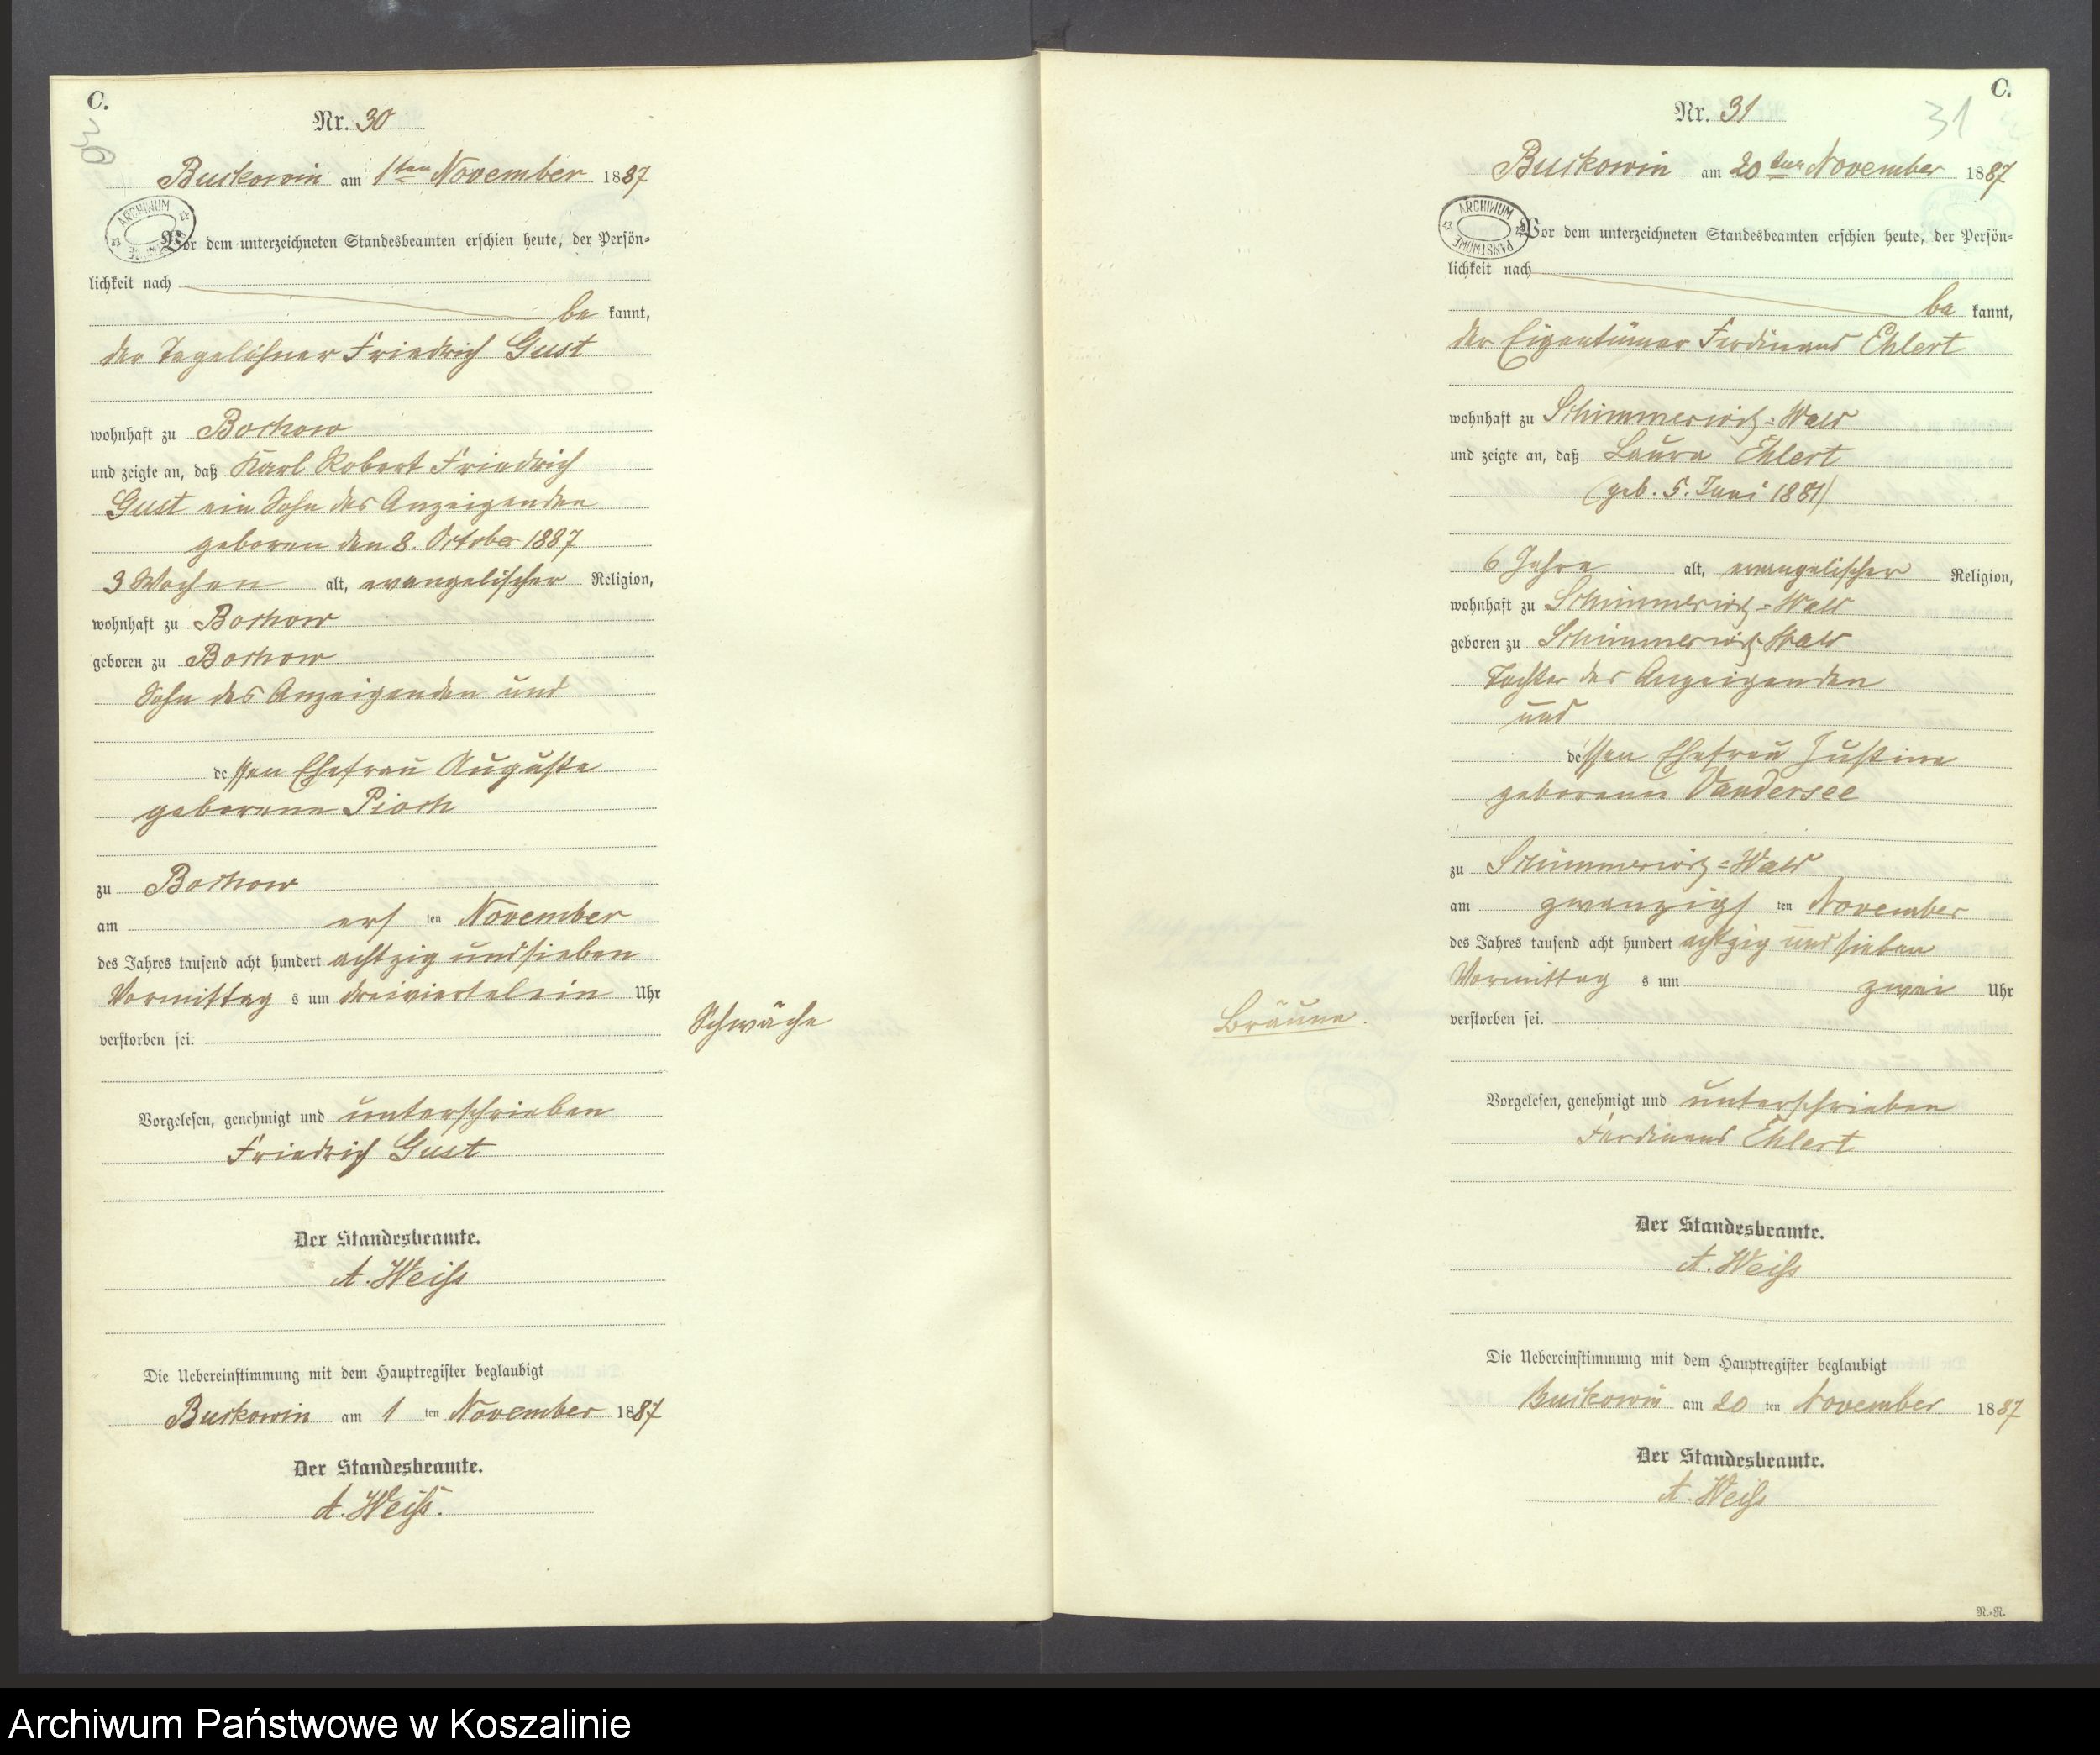 C.
Nr. 30
30
Buckowin am 1ten November 1887
ARCHIWUM
Vor dem unterzeichneten Standesbeamten erschien heute, der Persön-
lichkeit nach
be kannt,
der Tagelöhner Friedrich Gust
wohnhaft zu Bochow
und zeigte an, daß Karl Robert Friedrich
Gust ein Sohn des Anzeigenden
geboren den 8. October 1887
3 Wochen alt, evangelischer Religion,
wohnhaft zu Bochow
geboren zu Bochow
Sohn des Anzeigenden und
dessen Ehefrau Auguste
geborene Pioch
zu Bochow
am ersten November
des Jahres tausend acht hundert achtzig und sieben
Vormittags um dreiviertel ein Uhr
verstorben sei.
Schwäche
Vorgelesen, genehmigt und unterschrieben
Friedrich Gust
Der Standesbeamte.
A. Weiss
Die Uebereinstimmung mit dem Hauptregister beglaubigt
Buckowin am 1 ten November 1887
Der Standesbeamte.
A. Weiss.
C.
Nr. 31
31
Buckowin am 20ten November 1887
ARCHIWUM PAŃSTWOWE
Vor dem unterzeichneten Standesbeamten erschien heute, der Persön-
lichkeit nach
be kannt,
der Eigentümer Ferdinand Ehlert
wohnhaft zu Schimmerwitz-Wald
und zeigte an, daß Laura Ehlert
(geb. 5. Juni 1881)
6 Jahre alt, evangelischer Religion,
wohnhaft zu Schimmerwitz-Wald
geboren zu Schimmerwitz-Wald
Tochter des Anzeigenden
und
dessen Ehefrau Justine
geborene Vandersee
zu Schimmerwitz-Wald
am zwanzigsten November
des Jahres tausend acht hundert achtzig und sieben
Vormittags um zwei Uhr
verstorben sei.
Bräune.
Vorgelesen, genehmigt und unterschrieben
Ferdinand Ehlert
Der Standesbeamte.
A. Weiss
Die Uebereinstimmung mit dem Hauptregister beglaubigt
Buckowin am 20 ten November 1887
Der Standesbeamte.
A. Weiss
N.-N.
Archiwum Państwowe w Koszalinie